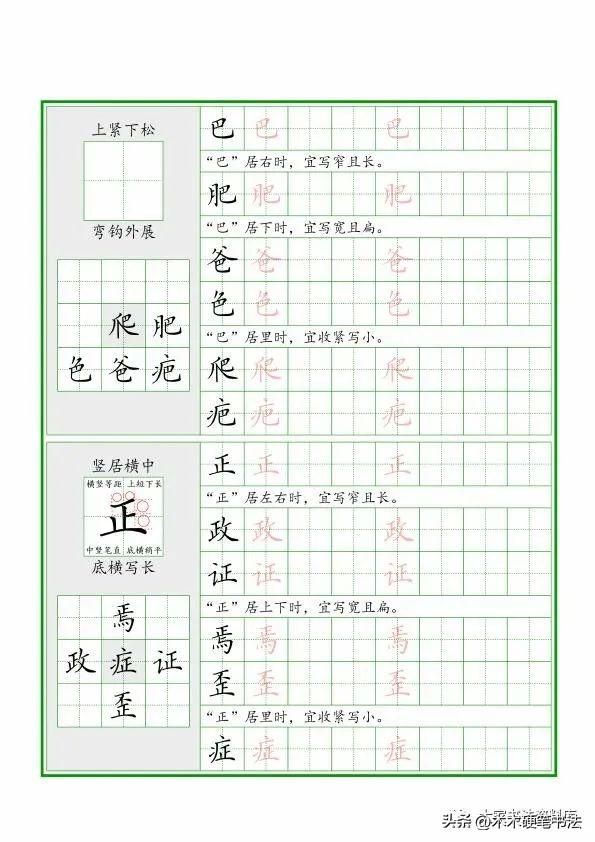 上紧下松
弯钩外展
爬 肥
色 爸 疤
巴 巴 巴
“巴”居右时，宜写窄且长。
肥 肥 肥
“巴”居下时，宜写宽且扁。
爸 爸 爸
色 色 色
“巴”居里时，宜收紧写小。
爬 爬 爬
疤 疤 疤
竖居横中
横竖等距 上短下长
正
中竖笔直 底横稍平
底横写长
焉
政 症 证
歪
正 正 正
“正”居左右时，宜写窄且长。
政 政 政
证 证 证
“正”居上下时，宜写宽且扁。
焉 焉 焉
歪 歪 歪
“正”居里时，宜收紧写小。
症 症 症
头条 @木木硬笔书法